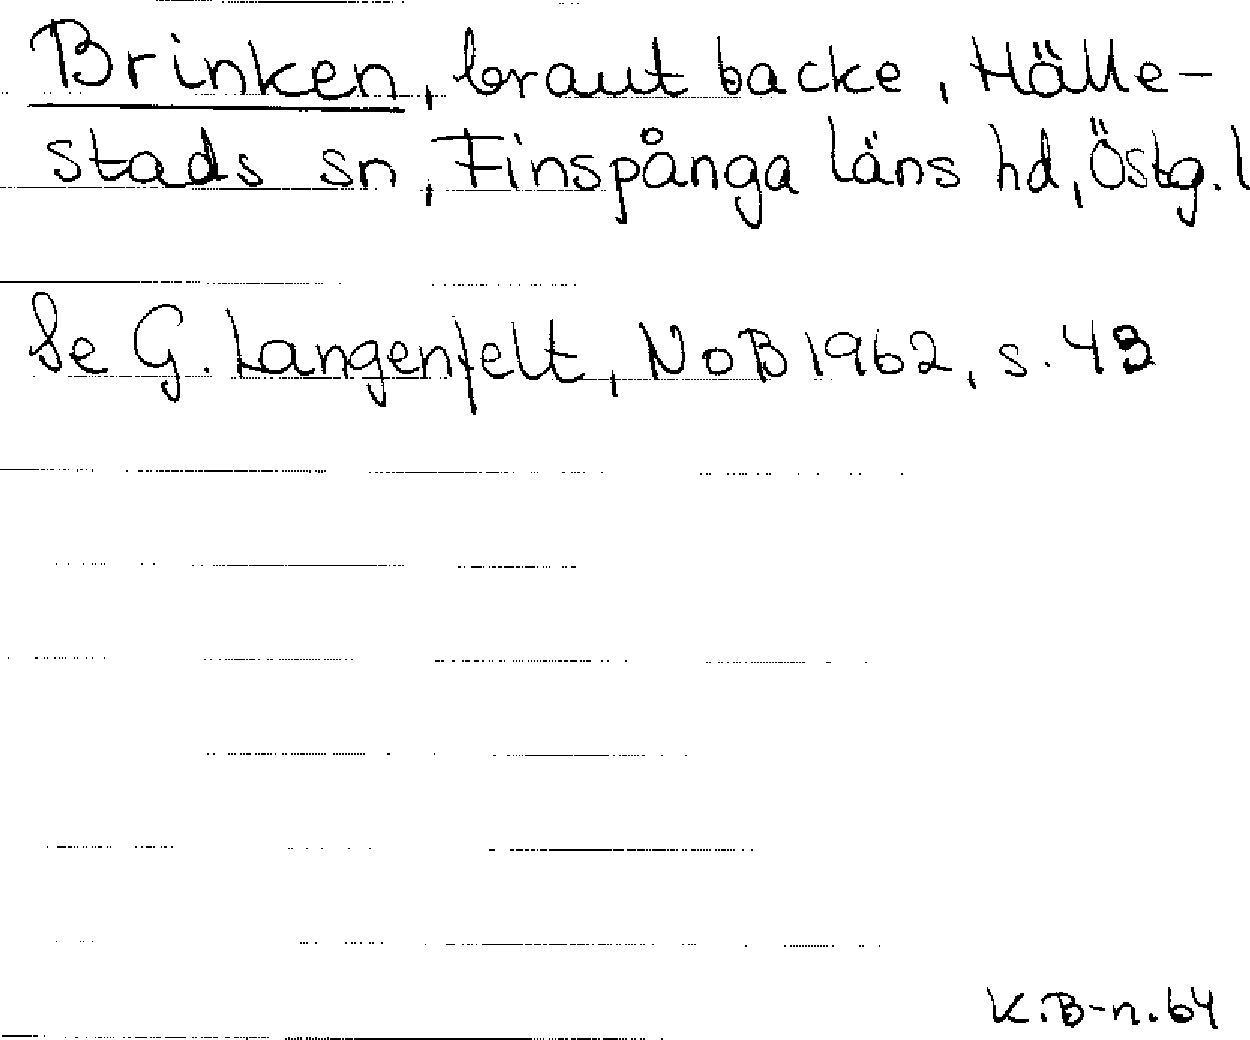 Brinken, brant backe, Hälle-
stads sn, Finspånga läns hd, Östg. l
Se G. Langenfelt, NoB 1962, s. 43
K.B-n. 64